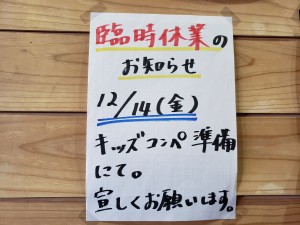 臨時休業の
お知らせ
12/14(金)
キッズコンペ準備
にて。
宜しくお願いします。